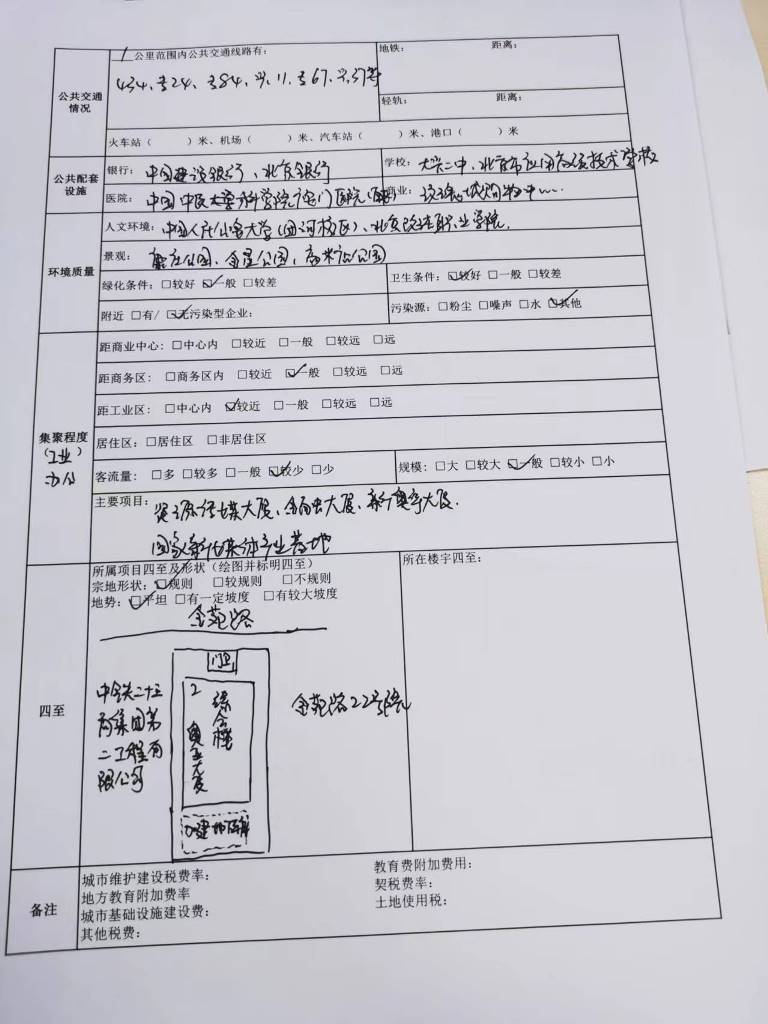 1 公里范围内公共交通线路有:
地铁: 距离:
434、专24、专84、兴11、专67、兴37等
公共交通情况
轻轨: 距离:
火车站（ ）米、机场（ ）米、汽车站（ ）米、港口（ ）米
公共配套设施
银行: 中国建设银行、北京银行
学校: 大兴二中、北京市应用高级技术学校
医院: 中国中医科学院广安门医院
商业:
环境质量
人文环境: 中国人民公安大学(团河校区)、北京政法职业学院.
景观: 公园、金星公园、高米店公园
绿化条件: □较好 ☑一般 □较差
卫生条件: ☑较好 □一般 □较差
附近 □有/ ☑无污染型企业:
污染源: □粉尘 □噪声 □水 ☑其他
集聚程度
（工业）
办公
距商业中心: □中心内 □较近 □一般 □较远 □远
距商务区: □商务区内 □较近 ☑一般 □较远 □远
距工业区: □中心内 ☑较近 □一般 □较远 □远
居住区: □居住区 □非居住区
客流量: □多 □较多 □一般 ☑较少 □少
规模: □大 □较大 ☑一般 □较小 □小
主要项目:
大厦、大厦、大厦.
国家新媒体产业基地
四至
所属项目四至及形状（绘图并标明四至）
宗地形状: ☑规则 □较规则 □不规则
地势: ☑平坦 □有一定坡度 □有较大坡度
所在楼宇四至:
金苑路
门卫
中铁二十五
局集团第
二工程有
限公司
2
综合楼
大厦
金苑路22号院
备注
城市维护建设税费率:
教育费附加费用:
地方教育附加费率
契税费率:
城市基础设施建设费:
土地使用税:
其他税费: